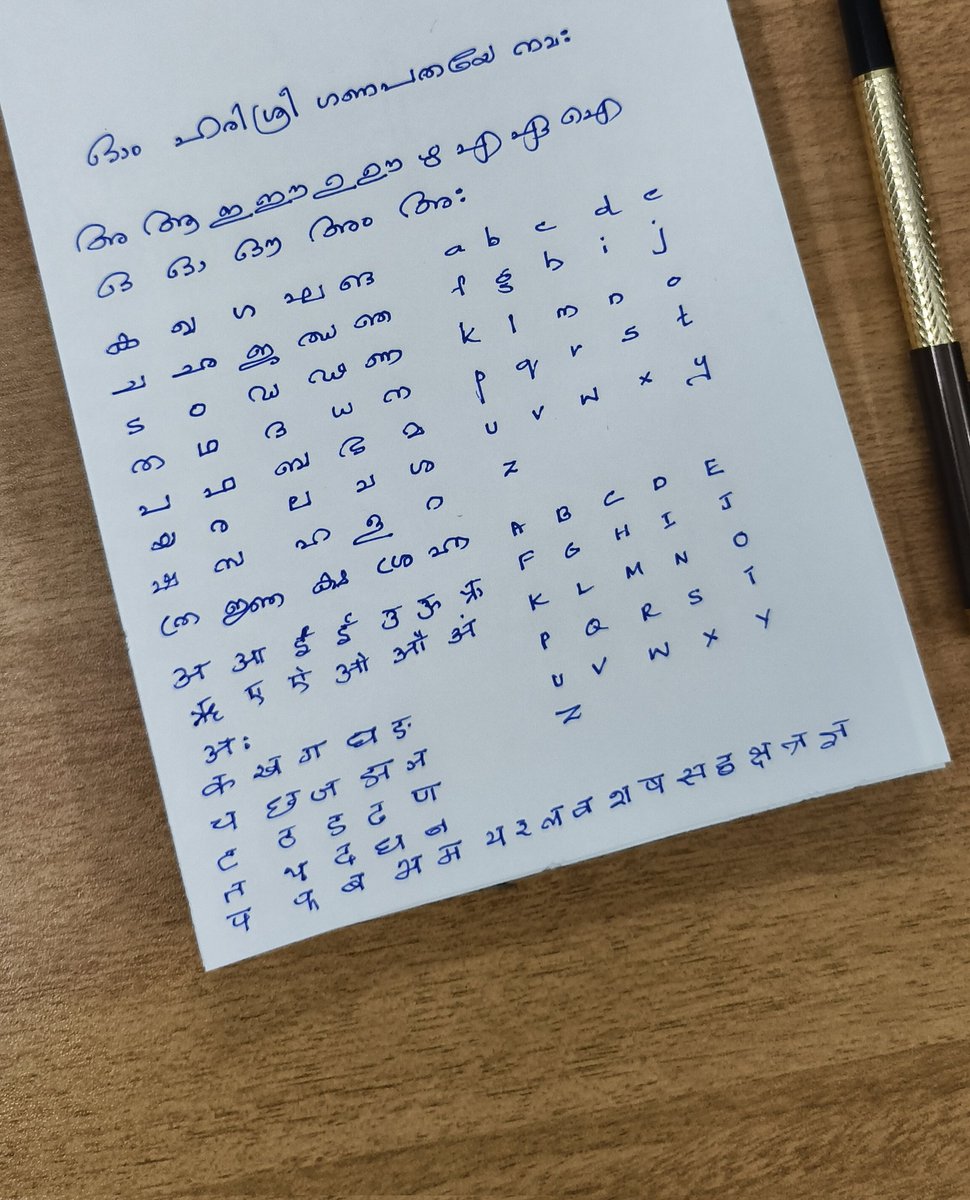 ഓം ഹരിശ്രീ ഗണപതയേ നമഃ
അ ആ ഇ ഈ ഉ ഊ ഋ എ ഏ ഐ
ഒ ഓ ഔ അം അഃ
ക ഖ ഗ ഘ ങ
ച ഛ ജ ഝ ഞ
ട ഠ ഡ ഢ ണ
ത ഥ ദ ധ ന
പ ഫ ബ ഭ മ
യ ര ല വ ശ
ഷ സ ഹ ള റ
ത്ര ജ്ഞ ക്ഷ ശ്ര ഹ്ന
a b c d e
f g h i j
k l m n o
p q r s t
u v w x y
z
A B C D E
F G H I J
K L M N O
P Q R S T
U V W X Y
Z
अ आ इ ई उ ऊ ऋ
ॠ ए ऐ ओ औ अं
अः
क ख ग घ ङ
च छ ज झ ञ
ट ठ ड ढ ण
त थ द ध न
प फ ब भ म य र ल व श ष स ह क्ष त्र ज्ञ